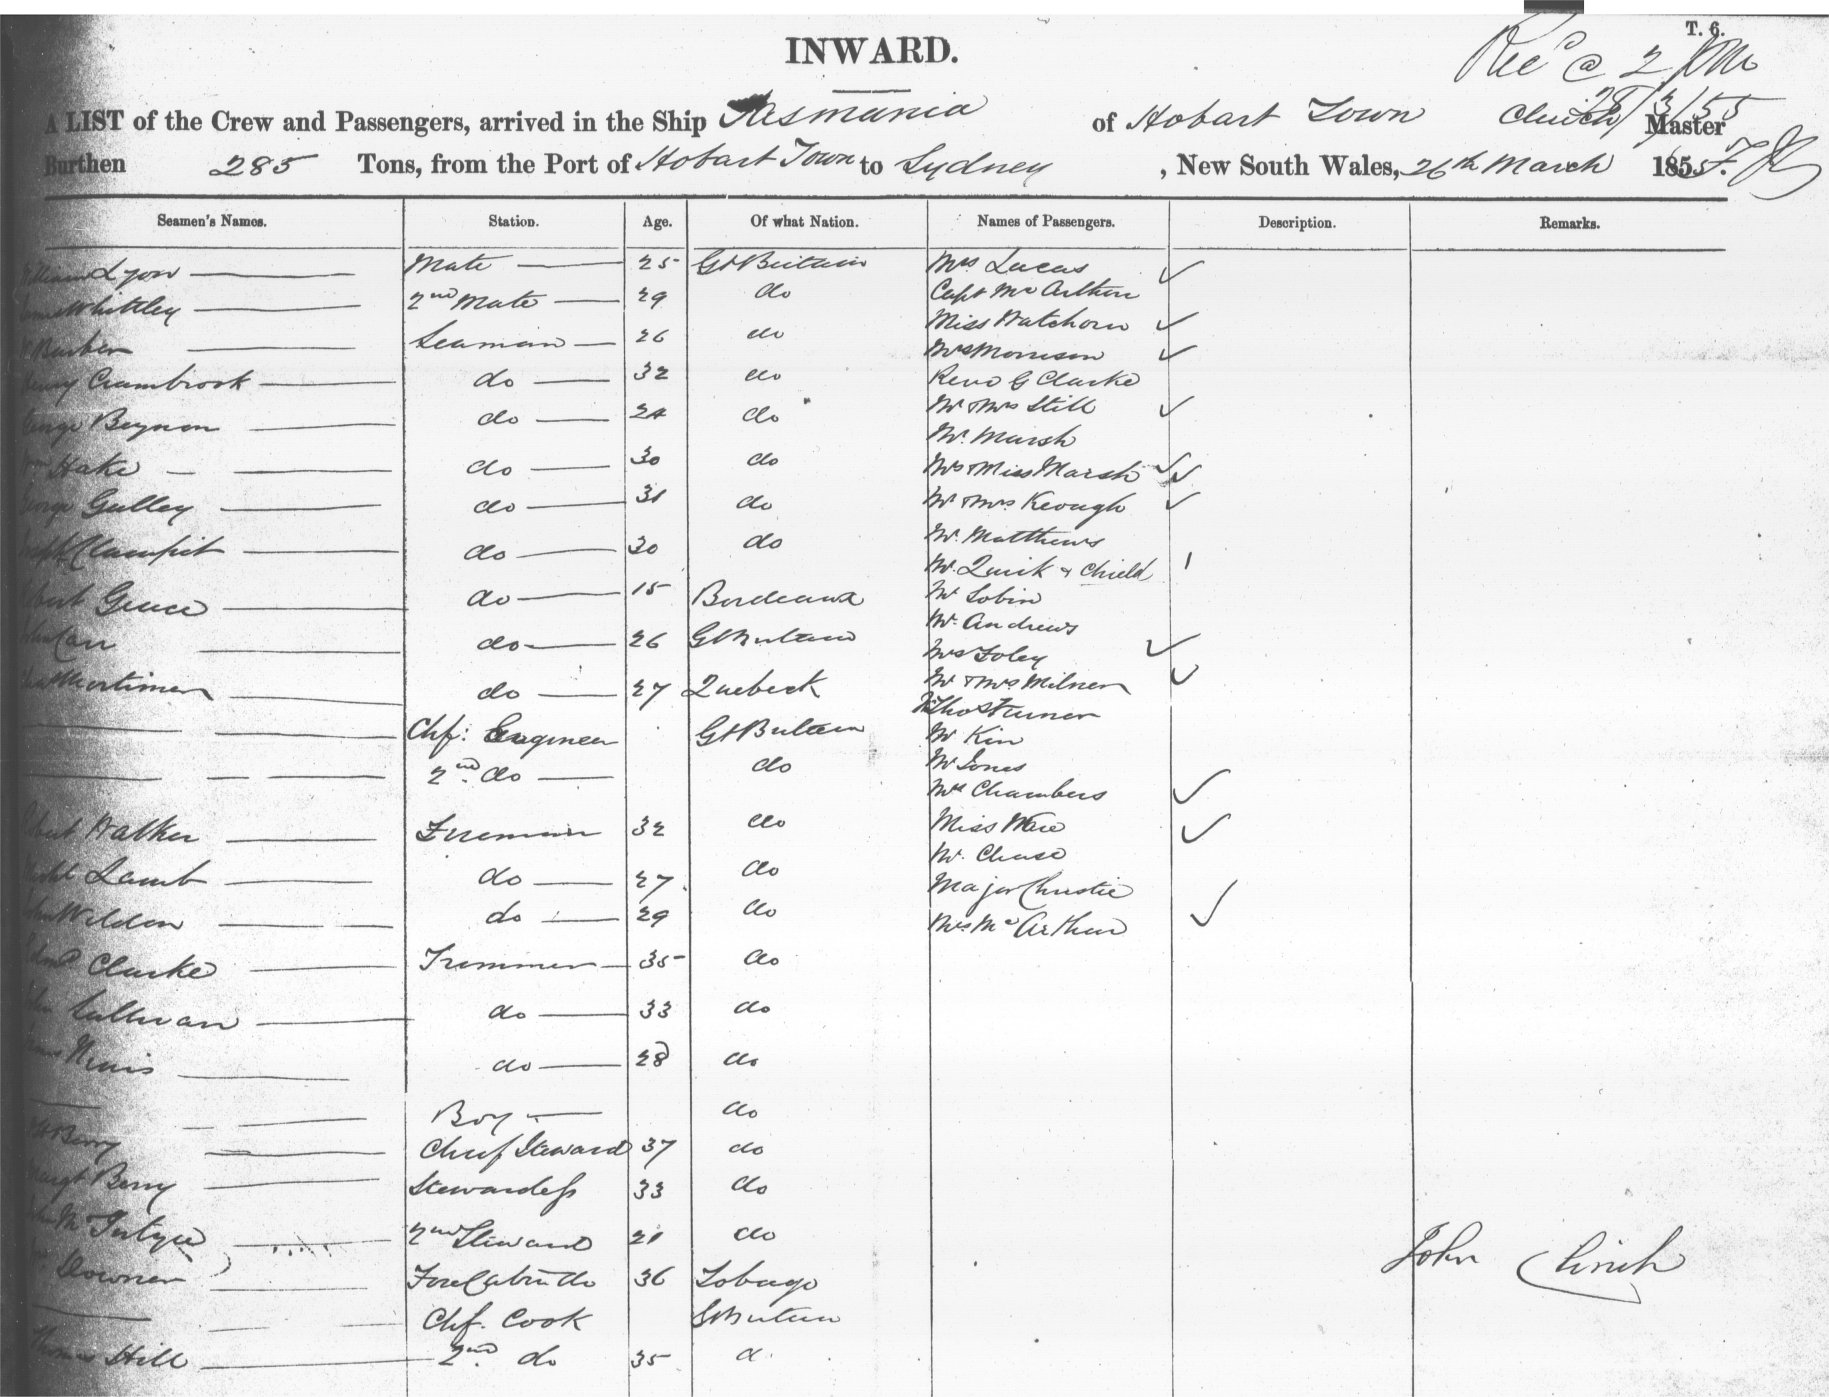 T. 6.
INWARD.
Rec^d @ 2 PM
28/3/55
A LIST of the Crew and Passengers, arrived in the Ship Tasmania of Hobart Town Clinch Master
Burthen 285 Tons, from the Port of Hobart Town to Sydney, New South Wales, 26th March 1855.
Seamen's Names. Station. Age. Of what Nation. Names of Passengers. Description. Remarks.
William Lyon Mate 25 Gt Britain Mrs Lucas
Capt Mc Arthur
Whittley 2nd Mate 29 do
Miss Watchorn
Barber Seaman 26 do
Mrs Morrison
Henry Crambrook do 32 do Revd G Clarke
George Beynon do 24 do Mr & Mrs Still
Mr. Marsh
Hake do 30 do Mrs & Miss Marsh
George Gulley do 31 do Mr & Mrs Keough
Joseph Clampit do 30 do Mr. Matthews
Mr. Quick & Child
Grace do 15 Bordeaux Mr Tobin
Mr. Andrews
John Carr do 26 Gt Britain
Mrs Foley
Mortimer do 27 Quebeck Mr & Mrs Milner
Thos Turner
Chf: Engineer Gt Britain Mr Kin
2nd do do Mr Jones
Mrs Chambers
Robert Walker Fireman 32 do Miss Ware
Mr. Chase
Lamb do 27 do Major Christie
John Weldon do 29 do Mrs Mc Arthur
Clarke Trimmer 35 do
John Sullivan do 33 do
do 28 do
Boy do
Berry Chief Steward 37 do
Margt Berry Stewardess 33 do
John Mc Intyre 2nd Steward 21 do
Downer Fore Cabin do 36 Tobago
John Clinch
Chf. Cook Gt Britain
Thomas Hill 2nd do 35 d